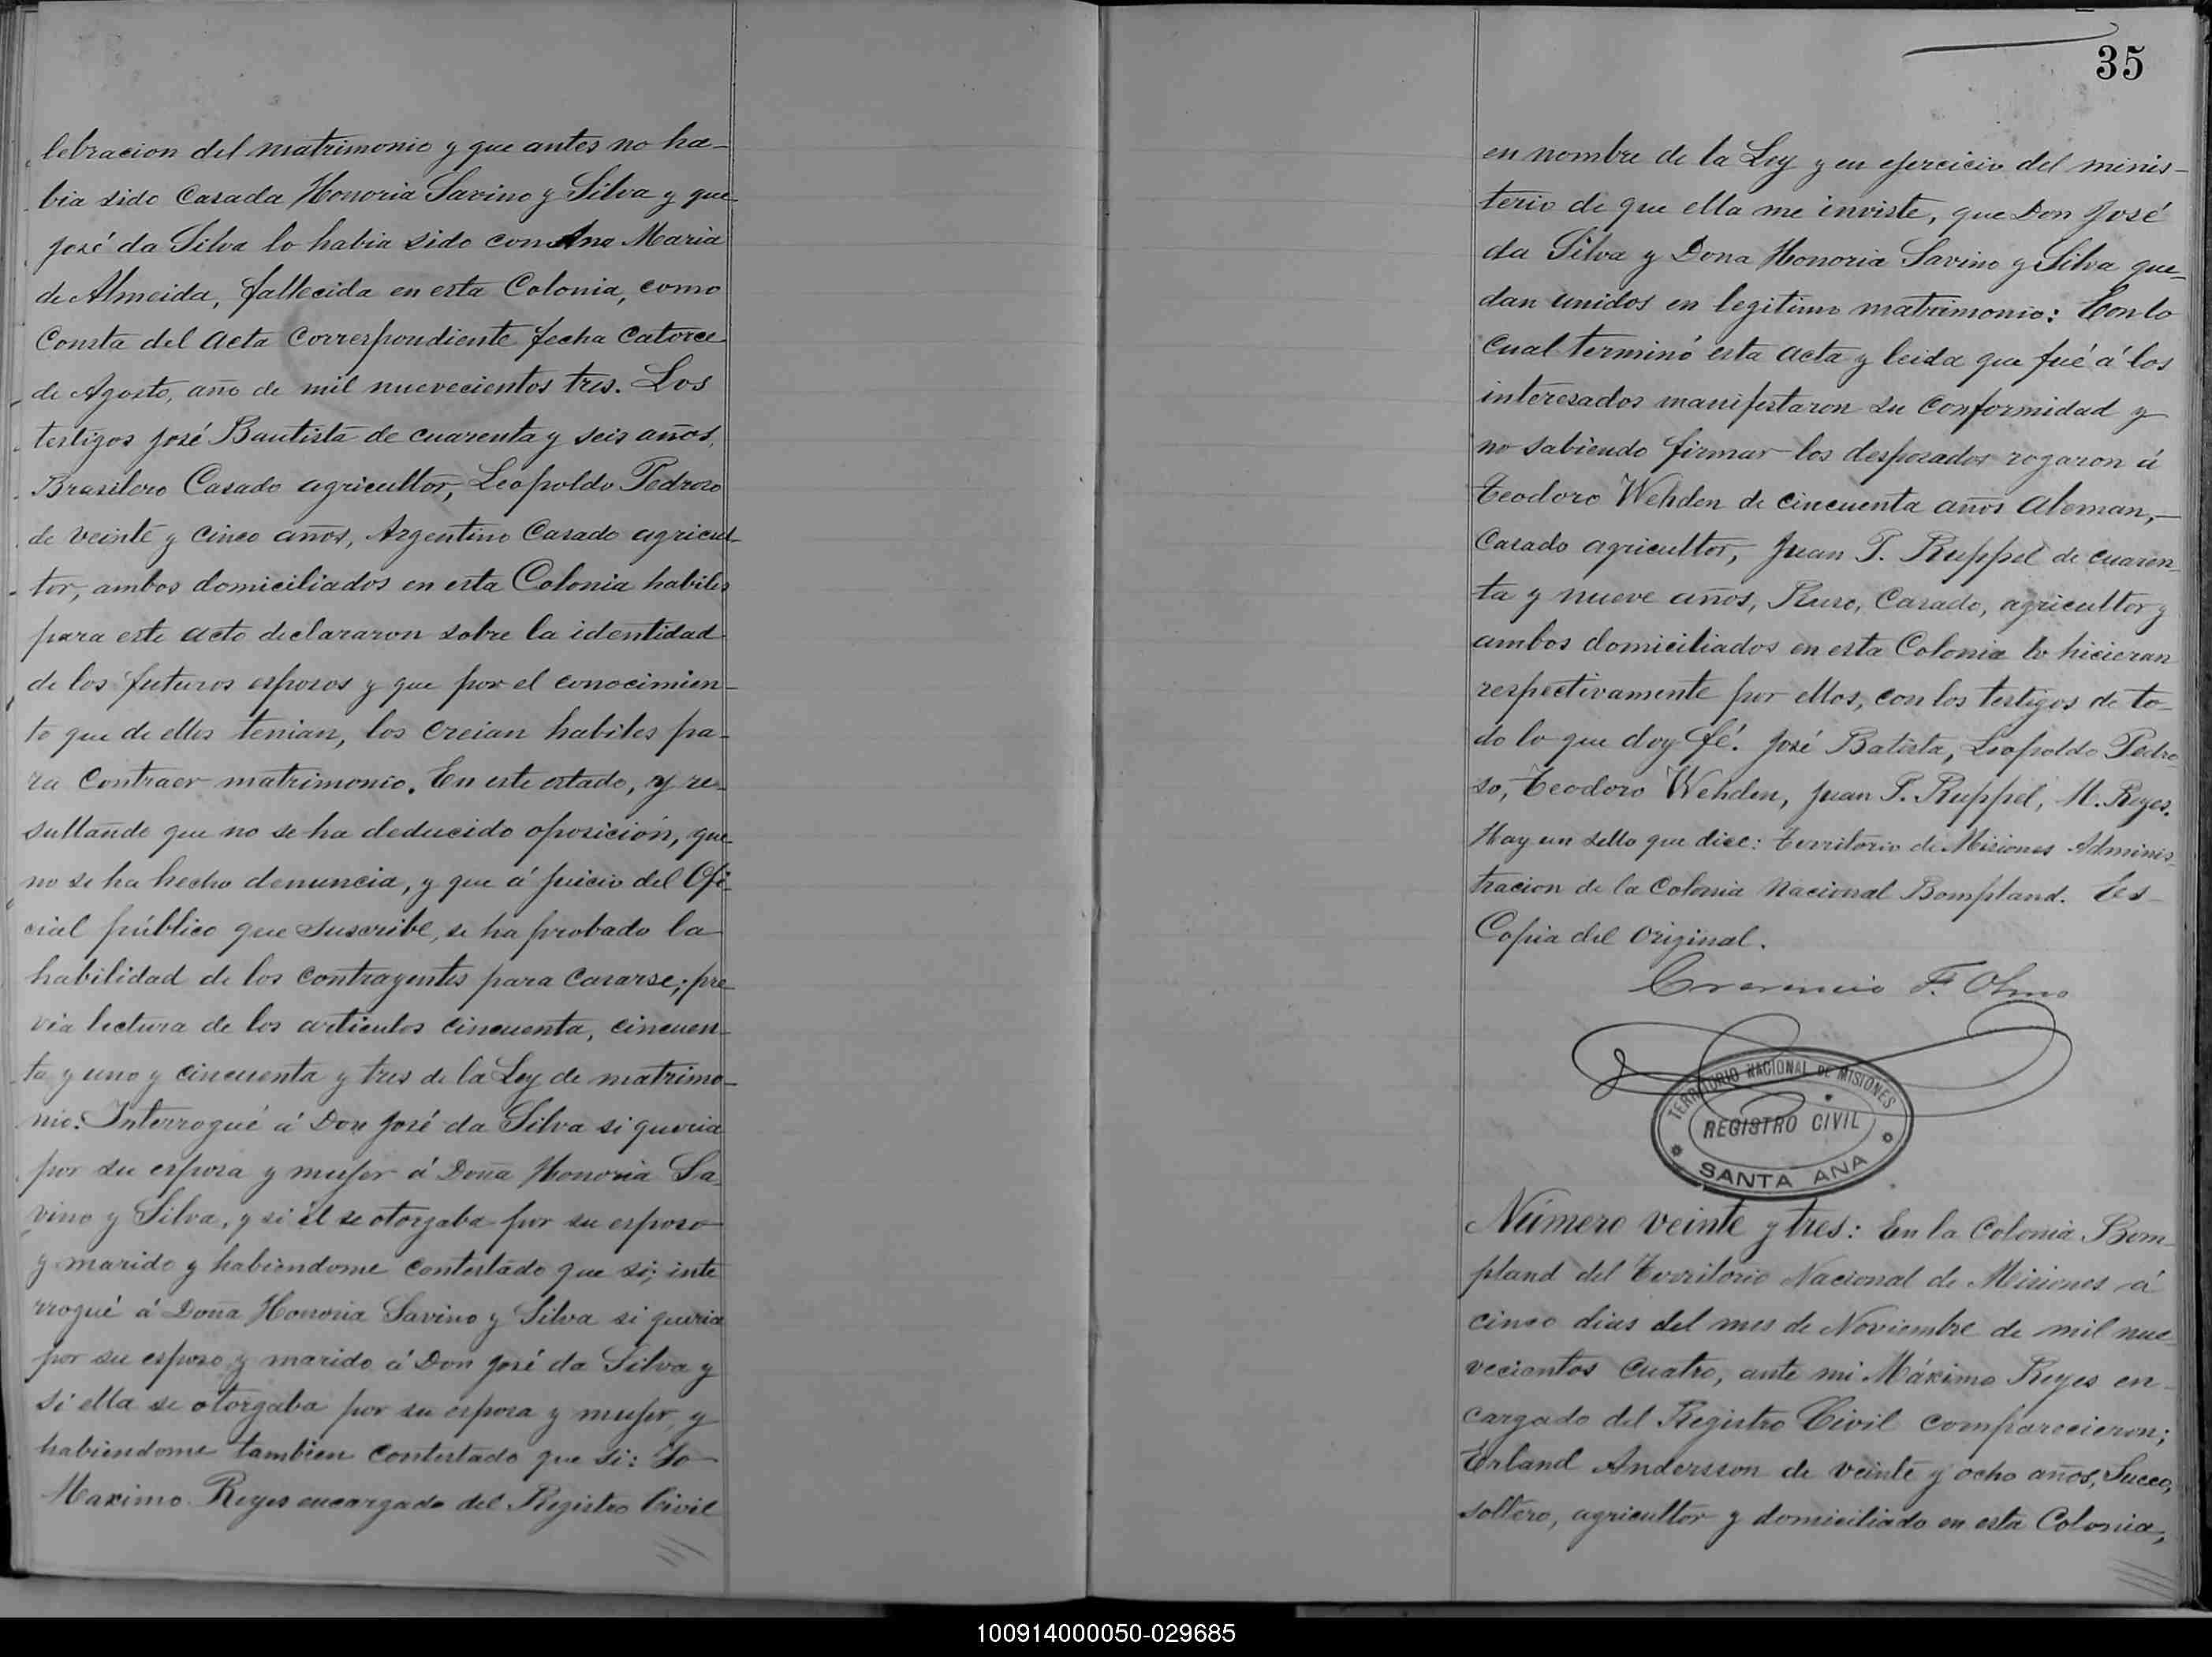 lebracion del matrimonio y que antes no ha-
bia sido Casada Honoria Savino y Silva y que
José da Silva lo habia sido con Ana Maria
de Almeida, fallecida en esta Colonia, como
Consta del acta Correspondiente fecha Catorce
de Agosto, año de mil nuevecientos tres. Los
testigos José Bautista de cuarenta y seis años,
Brasilero Casado agricultor, Leopoldo Pedroso
de veinte y cinco años, Argentino Casado agricul-
tor, ambos domiciliados en esta Colonia habiles
para este acto declararon sobre la identidad
de los futuros esposos y que por el conocimien-
to que de ellos tenian, los creian habiles pa-
ra Contraer matrimonio. En este estado, y re-
sultando que no se ha deducido oposición, que
no se ha hecho denuncia, y que á juicio del Ofi-
cial público que suscribe, se ha probado la
habilidad de los contrayentes para Casarse; pre-
via lectura de los articulos cincuenta, cincuen-
ta y uno y cincuenta y tres de la Ley de matrimo-
nio: Interrogué á Don José da Silva si queria
por su esposa y mujer á Doña Honoria Sa-
vino y Silva, y si él se otorgaba por su esposo
y marido y habiendome contestado que si; inte
rrogué á Doña Honoria Savino y Silva si queria
por su esposo y marido á Don José da Silva y
si ella se otorgaba por su esposa y mujer, y
habiendome tambien contestado que si: Yo
Maximo Reyes encargado del Registro Civil
35
en nombre de la Ley y en ejercicio del minis-
terio de que ella me inviste, que Don José
da Silva y Dona Honoria Savino y Silva que-
dan unidos en legitimo matrimonio: Con lo
cual terminó esta acta y leida que fué á los
interesados manifestaron su conformidad y
no sabiendo firmar los desposados rogaron á
Teodoro Wehden de cincuenta años Aleman,
Casado agricultor, Juan P. Ruppel de cuaren
ta y nueve años, Ruso, Casado, agricultor y
ambos domiciliados en esta Colonia lo hicieran
respectivamente por ellos, con los testigos de to-
do lo que doy fé. José Batista, Leopoldo Pedro-
so, Teodoro Wehden, Juan P. Ruppel, M. Reyes.
Hay un sello que dice: Territorio de Misiones Adminis-
tracion de la Colonia Nacional Bompland. Es
Copia del Original.
F. Olmo
TERRITORIO NACIONAL DE MISIONES
REGISTRO CIVIL
SANTA ANA
Número veinte y tres: En la Colonia Bom
pland del Territorio Nacional de Misiones á
cinco dias del mes de Noviembre de mil nue
vecientos cuatro, ante mi Máximo Reyes en-
cargado del Registro Civil comparecieron;
Erland Andersson de veinte y ocho años, Sueco,
soltero, agricultor y domiciliado en esta Colonia,
100914000050-029685